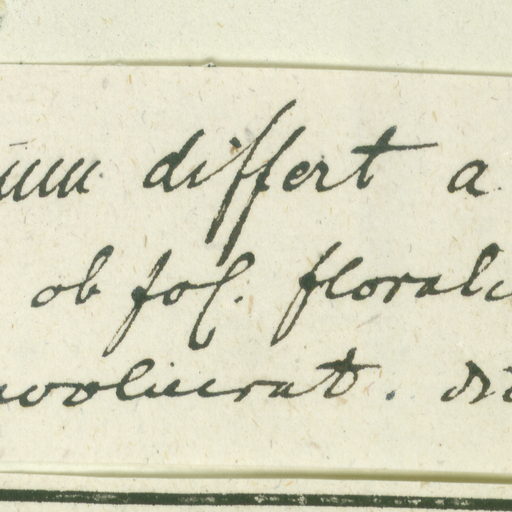 differt a
ob fol. floral
involucrat.